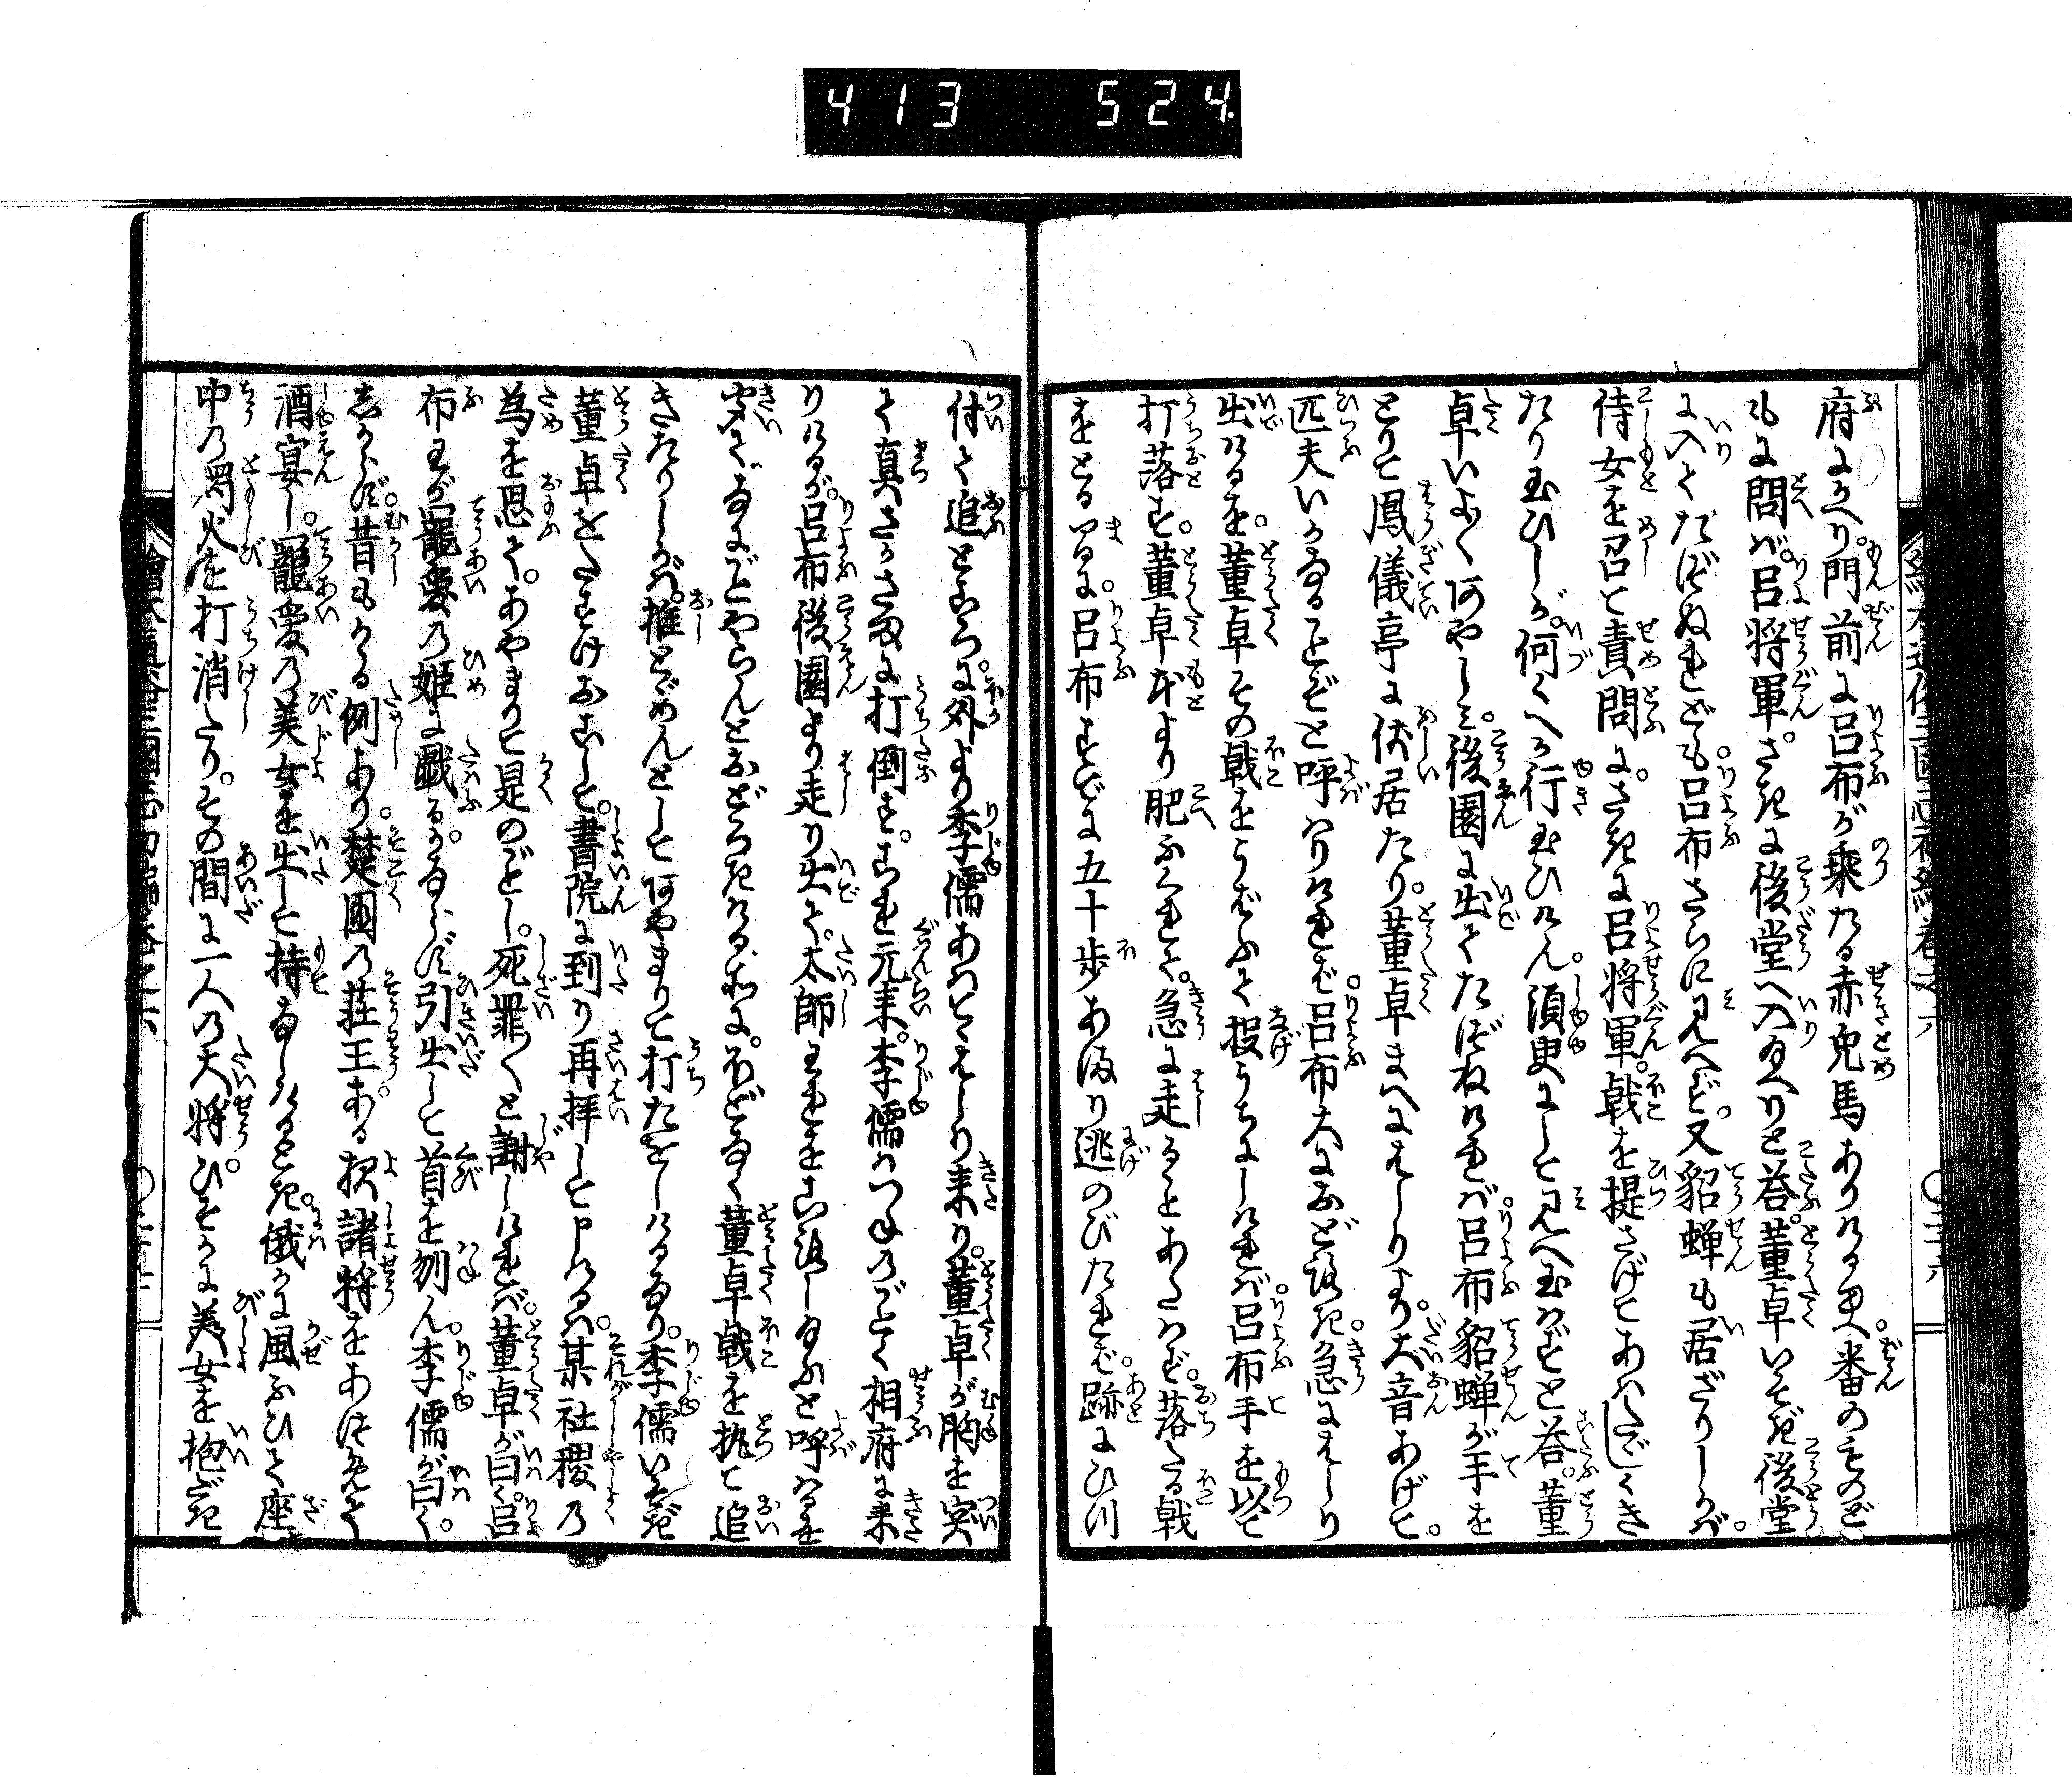 413 524
府にかへり。門前に呂布が乗たる赤兎馬ありける程に。番のものど
もに問ば。呂将軍。さきに後堂へ入給へりと答。董卓いそぎ後堂
に入てたづぬれども。呂布さらに見へず。又貂蝉も居ざりしかば。
侍女を召て責問に。さきに呂将軍。戟を提さげてあはたゞしくき
たり玉ひしが。何くへか行玉ひけん。須臾にして見へ玉はずと答。董
卓いよ〱あやしみ。後園に出てたづねければ。呂布貂蝉が手を
とりて鳳儀亭に伏居たり。董卓まへにはしりより。大音あげて。
匹夫いかなることぞと呼はりければ。呂布大におどろき。急にはしり
出けるを。董卓その戟をうばふて投うちにしければ。呂布手を以て
打落す。董卓本より肥ふくれて。急に走ることあたはず。落たる戟
をとるいまに。呂布すでに五十歩あまり逃のびたれば。跡にひつ
付て追ところに。外より李儒あはてはしり来り。董卓が胸を突
て真さかさまに打倒す。これ元来。李儒はつねのごとく相府に来
りけるが。呂布後園より走り出て。太師われをころし給ふと呼はるを
きゝて。なにごとやらんとおどろきける所に。ほどなく董卓戟を執て追
きたりしかば。推とゞめんとしてあやまりて打たをしけるなり。李儒いそぎ
董卓をたすけおこして。書院に到り再拝して申けるは。某社稷の
為を思て。あやまりて是のごとし。死罪〱と謝しければ。董卓が曰く。呂
布わが寵愛の姫に戯る。かならず引出して首を刎ん。李儒が曰く。
しからず。昔もかゝる例あり。楚国の荘王。ある夜諸将をあつめて
酒宴し。寵愛の美女を出して持なしけるとき。俄に風ふひて座
中の燭火を打消たり。その間に一人の大将。ひそかに美女を抱だき